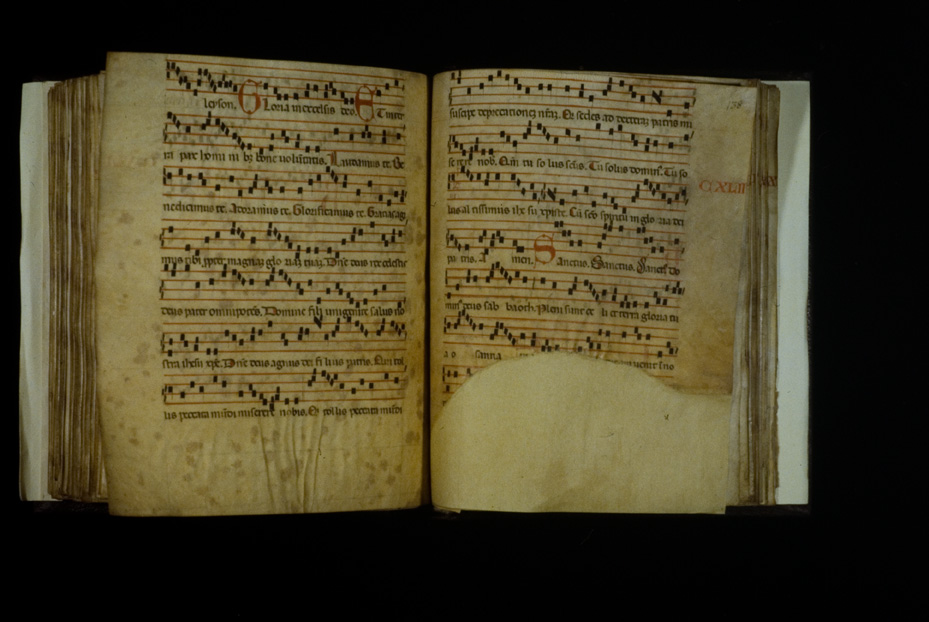 leyson. Gloria in excelsis deo. Et in ter
ra pax homi ni bꝫ bone voluntatis. Laudamus te. Be
nedicimus te. Adoramus te. Glorificamus te. Gracias agi
mus tibi ꝓpter magnaꝫ glo riaꝫ tuaꝫ. Dñe deus rex celestis
deus pater omnipotēs. Domine fili unigenite
ihesu xp̄e. Dñe deus agnus dei fi lius patris. Qui tol
lis peccata mūdi miserere nobis. Qi tollis peccata mūdi
suscipe deprecationeꝫ nr̄aꝫ. Qi sedes ad dexteraꝫ patris mi
serere nob. Qm̄ tu so lus sc̄us. Tu solus domin᷒. Tu so
lus al tissimus xpiste. Cū sc̄o spiritu in glo ria dei
pa tris. A men. Sanctus. Sanctus. Sanct᷒ do
min᷒ deus sab baoth. Pleni sunt ce li et terra gloria tu
a o sanna
138
CXLIII